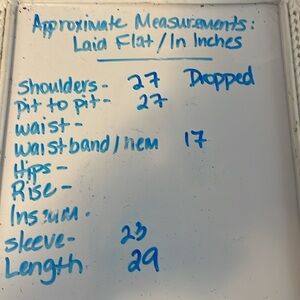 Approximate Measurements:
Laid Flat/In Inches
Shoulders- 27 Dropped
Pit to pit- 27
waist-
waistband/hem 17
Hips-
Rise-
Inseum.
sleeve- 23
Length 29